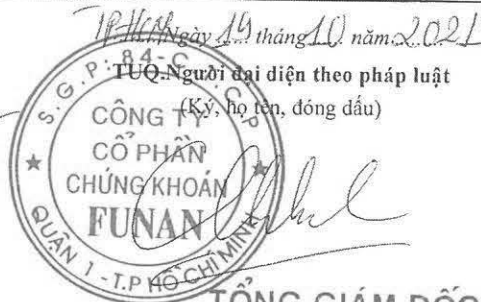 TP.HCM Ngày 19 tháng 10 năm 2021
TUQ.Người đại diện theo pháp luật
(Ký, họ tên, đóng dấu)
S.G.P: 84-C.T.C.P
CÔNG TY
CỔ PHẦN
CHỨNG KHOÁN
FUNAN
QUẬN 1 - T.P HỒ CHÍ MINH
TỔNG GIÁM ĐỐC